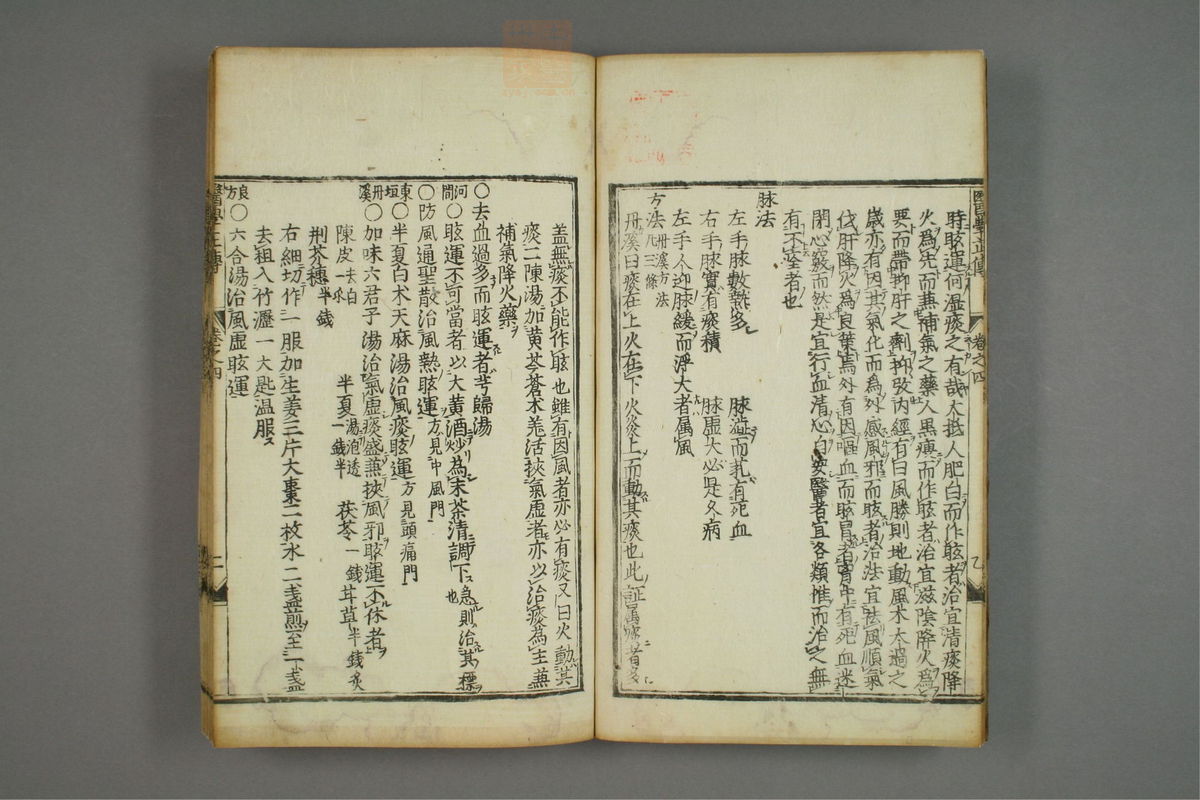 醫學正傳　卷之四
時眩運何濕痰之有哉大抵人肥白而作眩者治宜清痰降
火爲先而兼補氣之藥人黒痩而作眩者治宜滋陰降火爲
要而帶抑肝之劑抑攷内經有曰風勝則地動風木太過之
歳亦有因其氣化而為外感風邪而眩者治法宜祛風順氣
伐肝降火爲良策焉外有因嘔血而眩冒者胷中有死血迷
閉心竅而然是宜行血清心自安醫者宜各類推而治之無
有不痊者也
脉法
左手脉數熱多　脉澁而芤有死血
右手脉實有痰積　脉虚大必是久病
左手人迎脉緩而浮大者属風
方法 丹溪方法凡三條
丹溪曰痰在上火在下火炎上而動其痰也此証属痰者多
盖無痰不能作眩也雖有因風者亦必有痰又曰火動其
痰二陳湯加黄芩蒼术羌活挾氣虚者亦以治痰為主兼
補氣降火藥
○去血過多而眩運者芎歸湯
河間○眩運不可當者以大黄酒炒為末茶清調下急則治其標也
○防風通聖散治風熱眩運 方見中風門
東垣○半夏白术天麻湯治風痰眩運 方見頭痛門
丹溪○加味六君子湯治氣虚痰盛兼挾風邪眩運不休者
陳皮去白　半夏一錢半湯泡透　茯苓一錢　甘草半錢炙
荆芥穗半錢
右細切作一服加生姜三片大棗二枚水二盞煎至一盞
去粗入竹瀝一大匙温服
良方○六合湯治風虚眩運
醫學正傳　卷之四